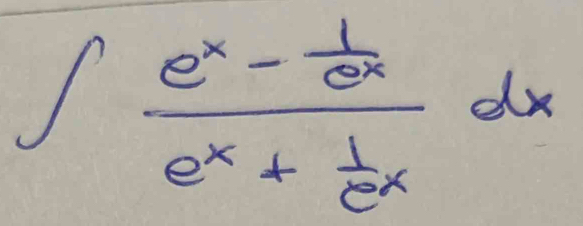 ∫ (e^x - 1/e^x)/(e^x + 1/e^x) dx